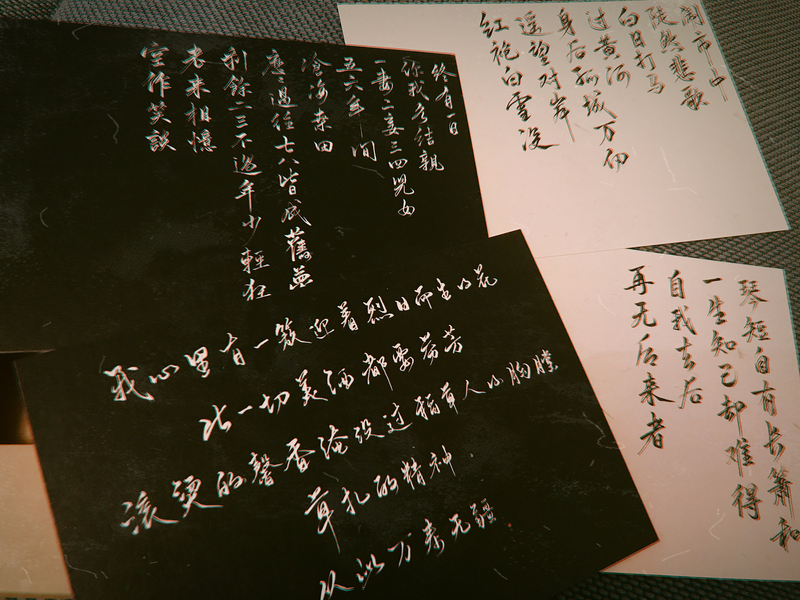 闹市中
陡然悲歌
白日打马
过黄河
身后孤城万仞
遥望对岸
红袍白雪没
终有一日
你我各结親
一妻二妾三四兒女
五六年间
滄海桑田
應是過往七八皆成舊夢
剩餘二三不過年少輕狂
老来相憶
空作笑談
琴短自有长箫和
一生知己却难得
自我去后
再无后来者
我心里有一簇迎着烈日而生的花
比一切美酒都要芬芳
滚烫的馨香淹没过稻草人的胸膛
草扎的精神，
从此万寿无疆